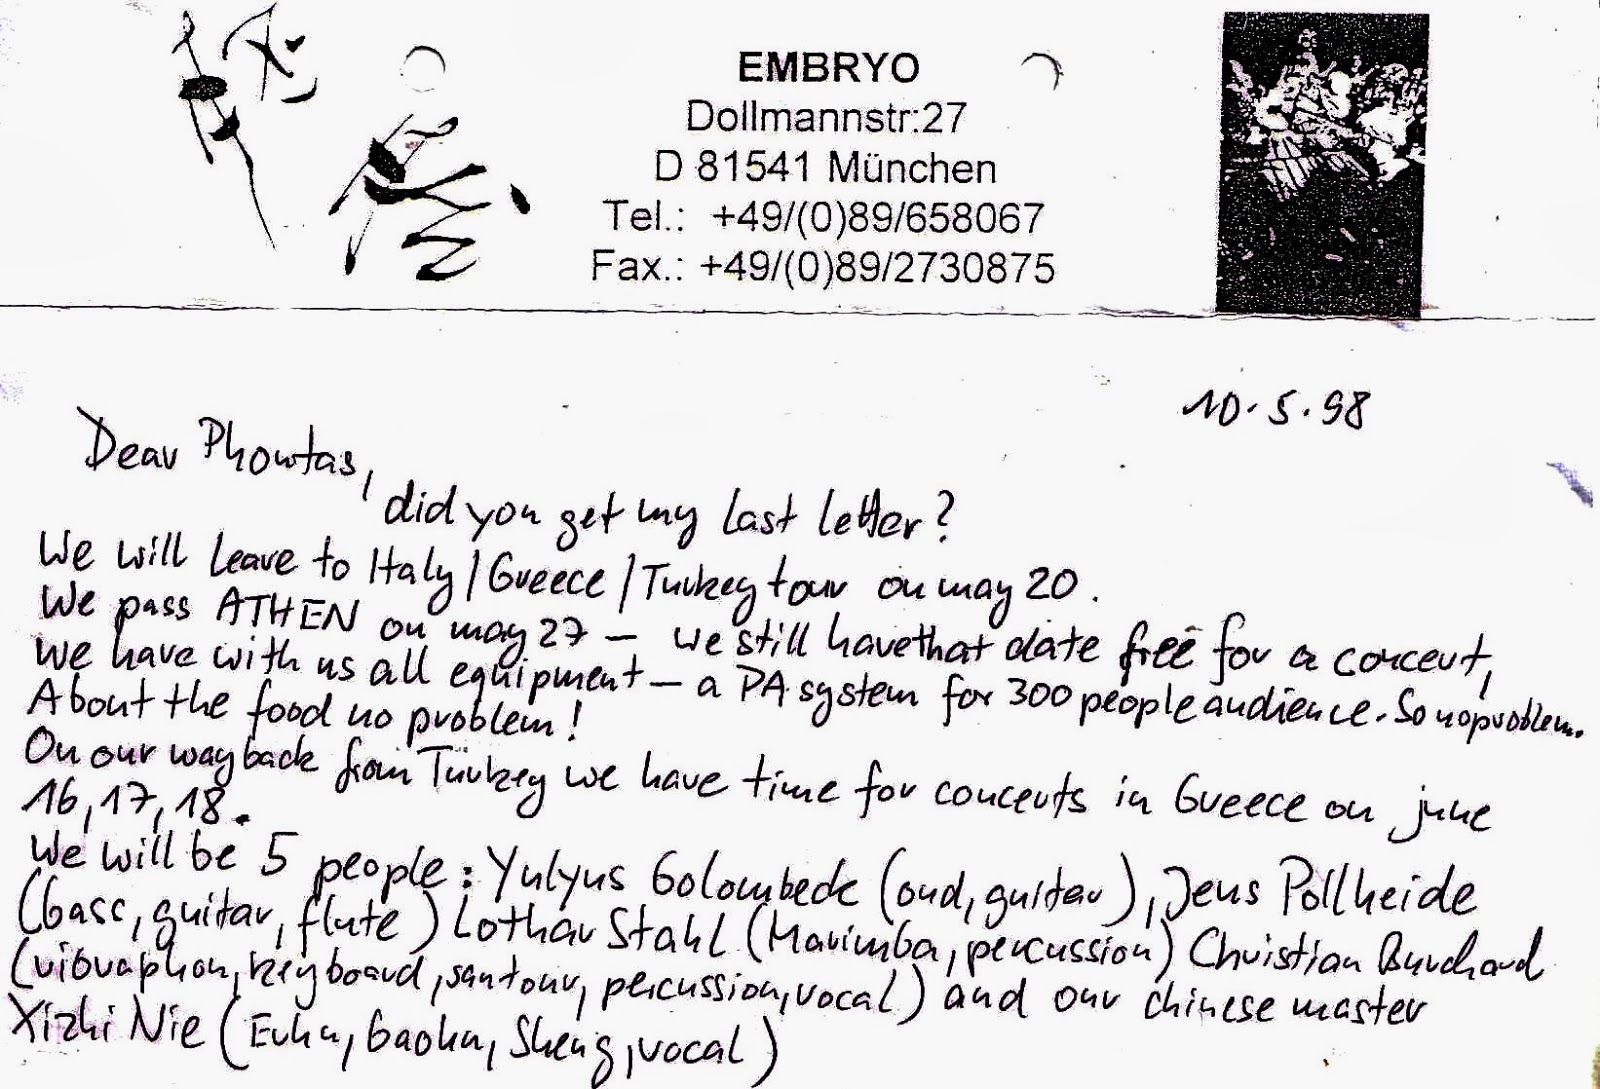 EMBRYO
Dollmannstr:27
D 81541 München
Tel.: +49/(0)89/658067
Fax.: +49/(0)89/2730875
10.5.98
Dear Phowtas,
did you get my last letter?
We will leave to Italy/Greece/Turkey tour on may 20.
We pass ATHEN on may 27 – we still have that date free for a concert,
We have with us all equipment – a PA system for 300 people audience. So no problem.
About the food no problem!
On our way back from Turkey we have time for concerts in Greece on june
16, 17, 18.
We will be 5 people: Yulyus Golombeck (oud, guitar), Jens Pollheide
(bass, guitar, flute) Lothar Stahl (Marimba, percussion) Christian Burchard
(vibraphon, keyboard, santour, percussion, vocal) and our chinese master
Xizhi Nie (Erhu, baohu, Sheng, vocal)